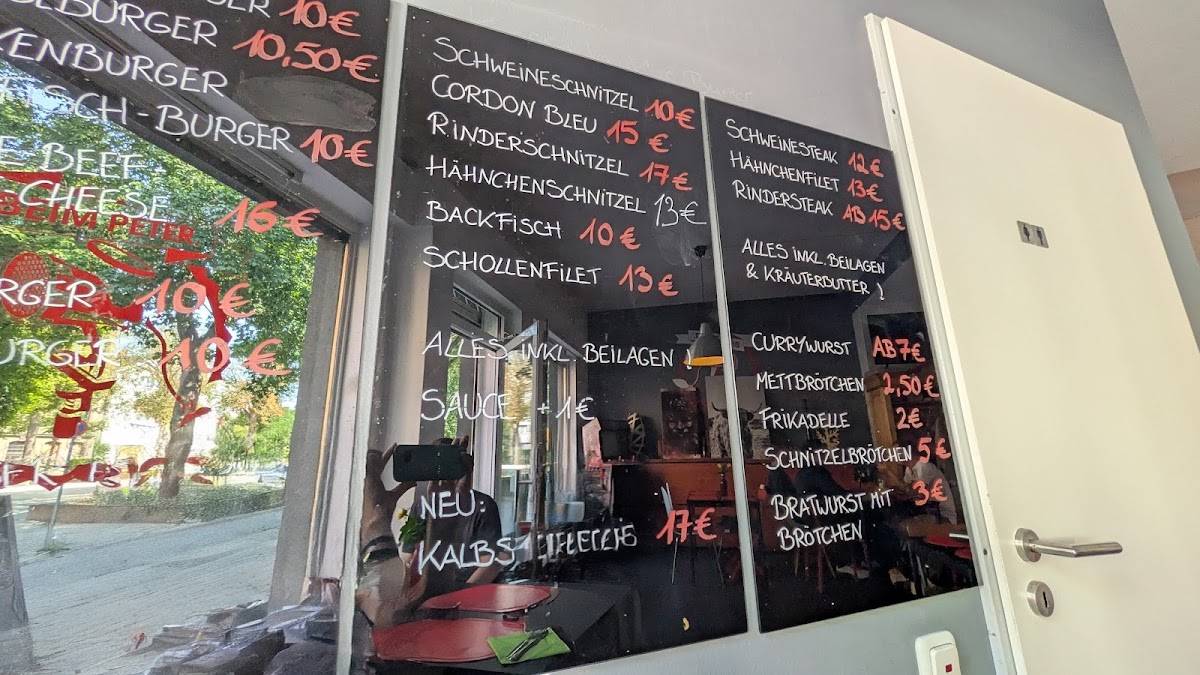 10€
BURGER 10,50€
BURGER
BURGER 10€
BEEF
CHEESE 16€
BEIM PETER
10€
10€
SCHWEINESCHNITZEL 10€
CORDON BLEU 15€
RINDERSCHNITZEL 17€
HÄHNCHENSCHNITZEL 13€
BACKFISCH 10€
SCHOLLENFILET 13€
ALLES INKL. BEILAGEN!
SAUCE +1€
NEU:
17€
SCHWEINESTEAK 12€
HÄHNCHENFILET 13€
RINDERSTEAK AB 15€
ALLES INKL. BEILAGEN
& KRÄUTERBUTTER!
CURRYWURST AB 7€
METTBRÖTCHEN 2,50€
FRIKADELLE 2€
SCHNITZELBRÖTCHEN 5€
BRATWURST MIT 3€
BRÖTCHEN